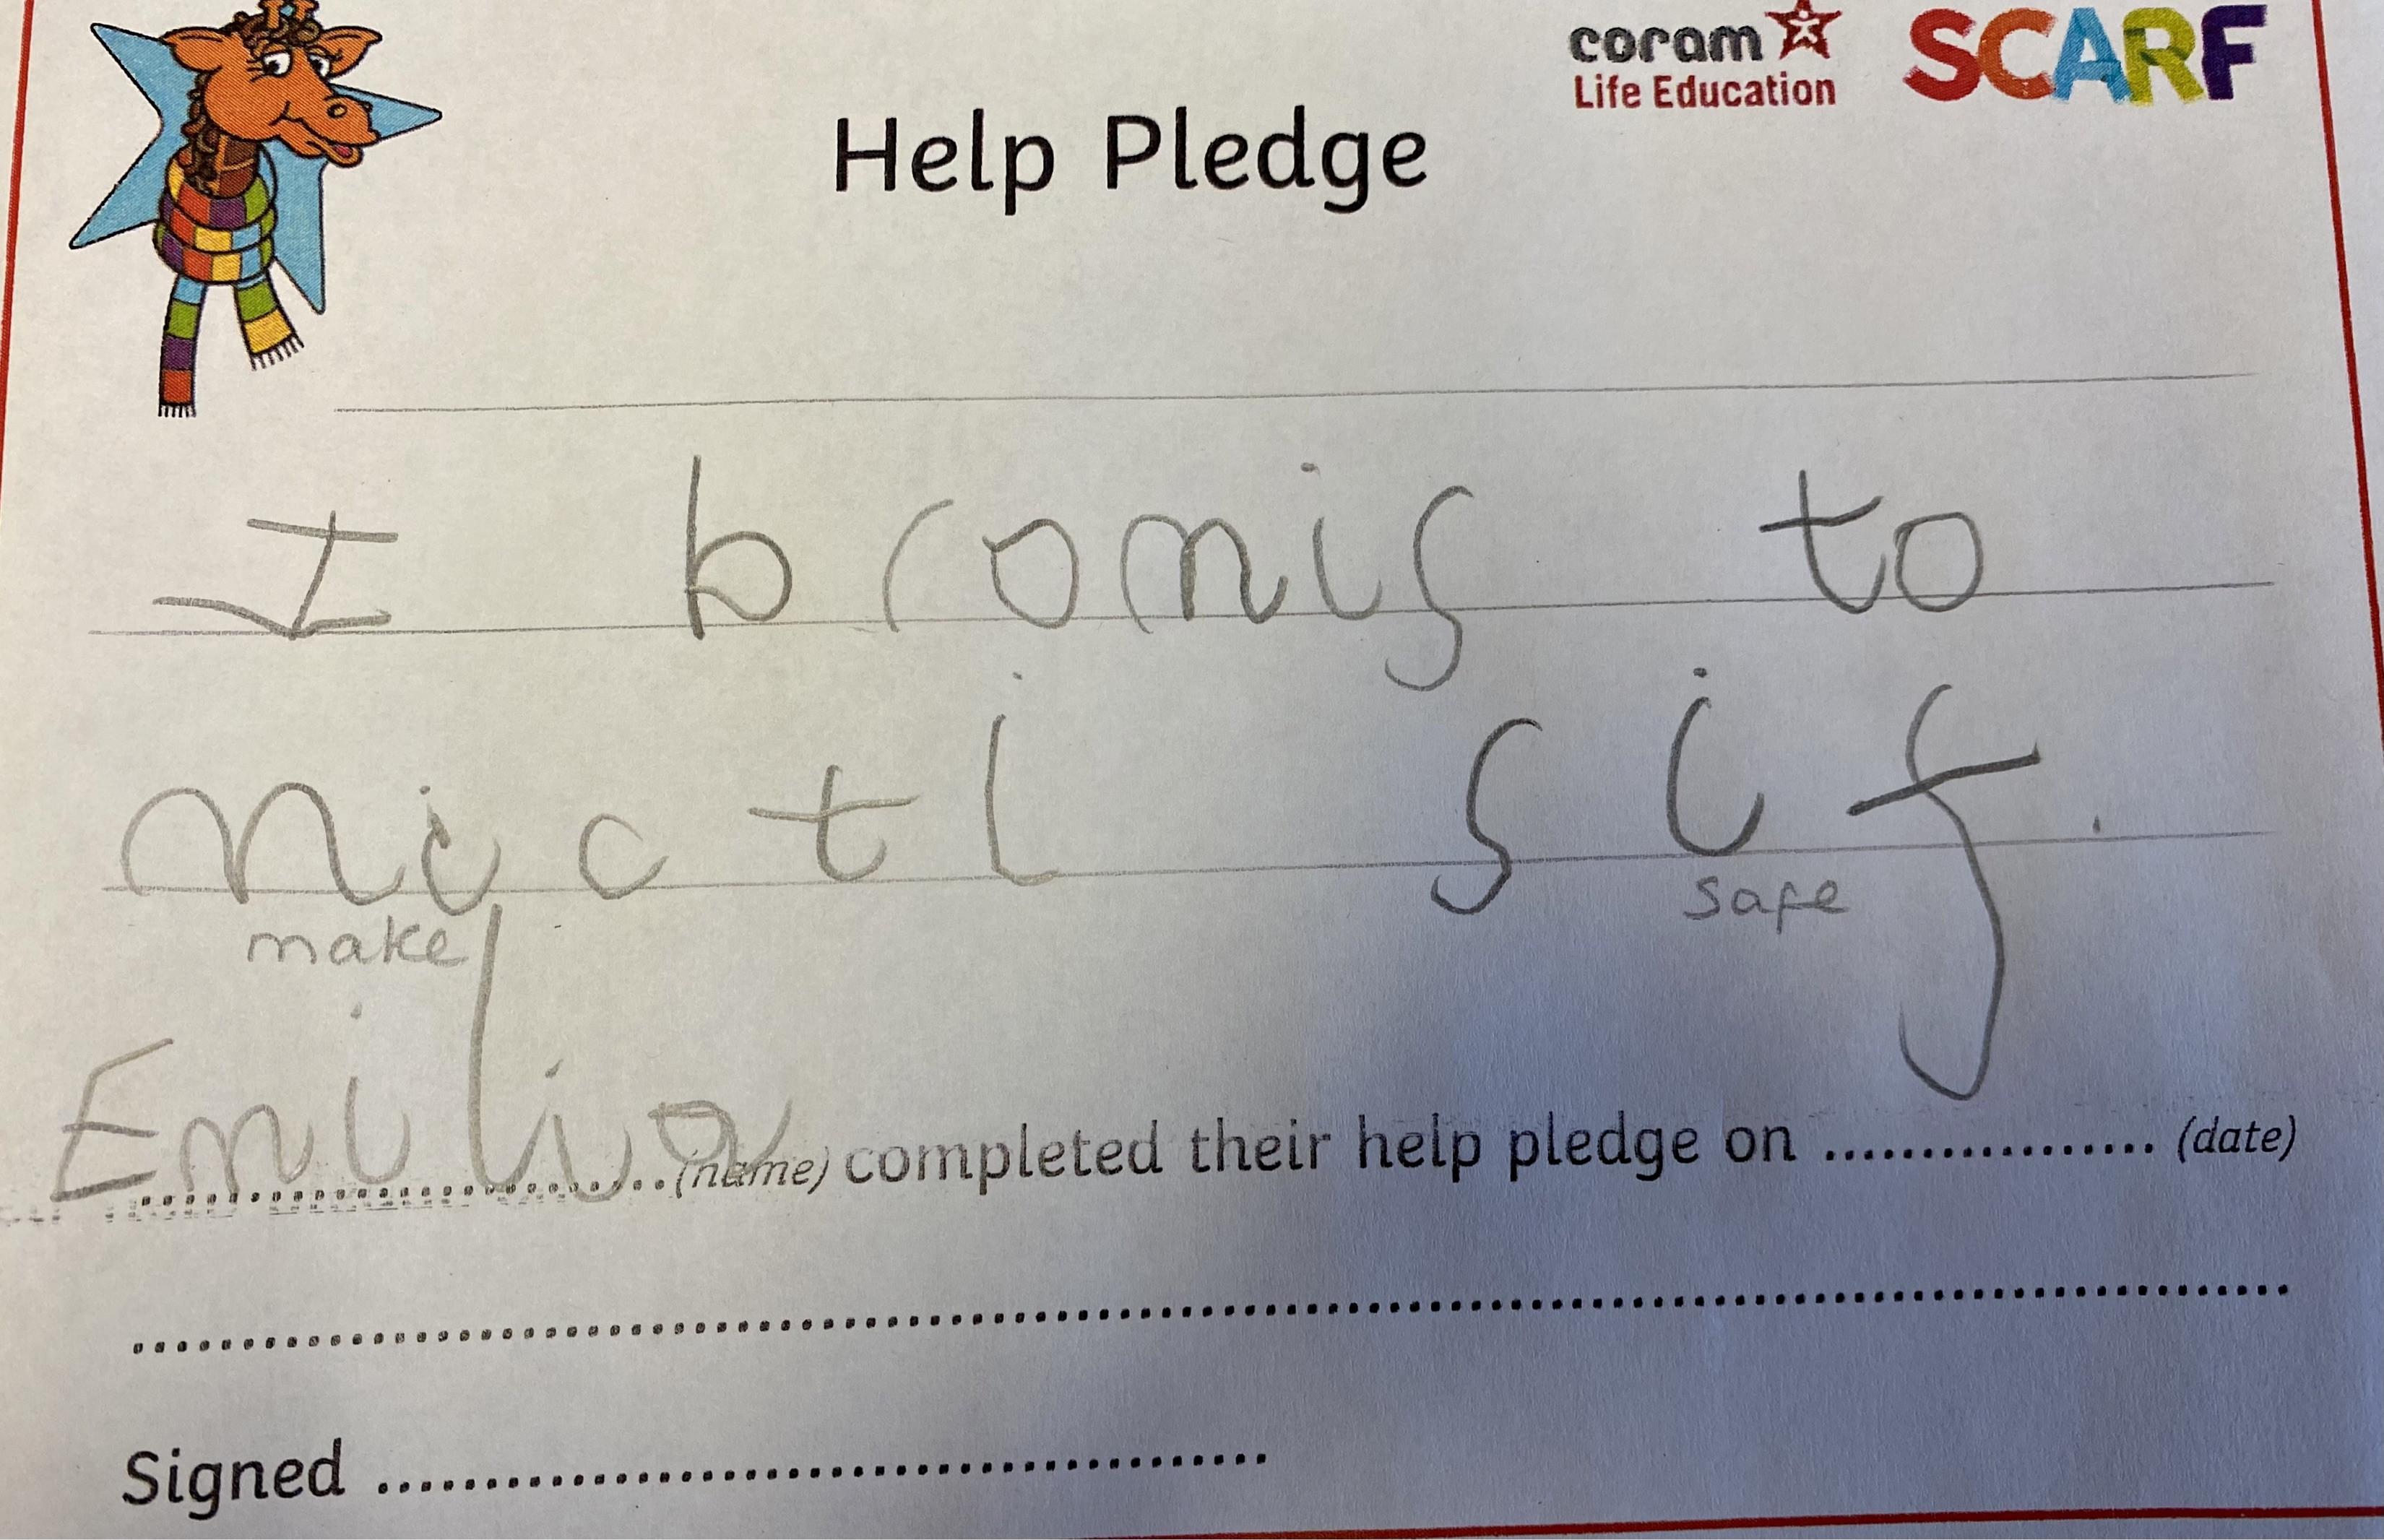 coram
Life Education
SCARF
Help Pledge
I bromis to
mic ti sif.
make safe
Emilia (name) completed their help pledge on ................. (date)
Signed